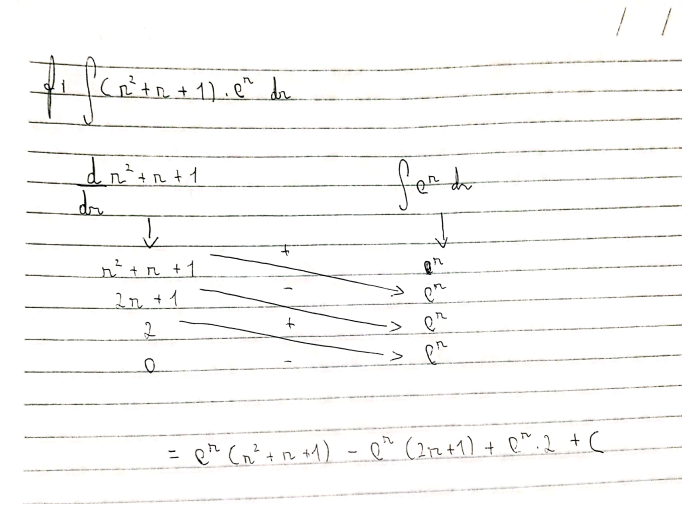 f1 ∫(x²+x+1).eˣ dx
d/dx x²+x+1 ∫eˣ dx
↓ ↓
x²+x+1 + eˣ
2x+1 - eˣ
2 + eˣ
0 - eˣ
= eˣ(x²+x+1) - eˣ(2x+1) + eˣ.2 + C